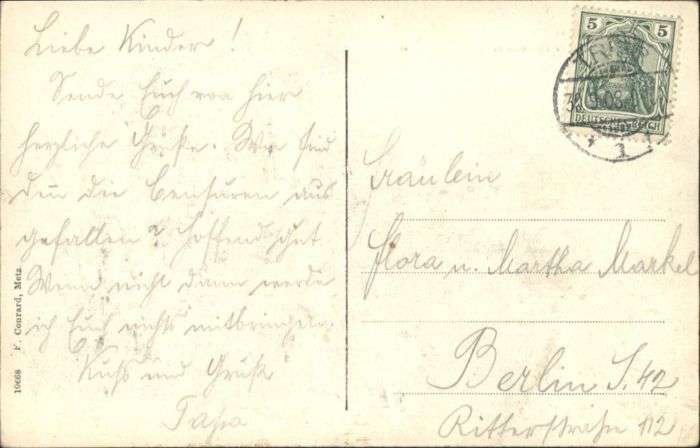 Liebe Kinder!
Sende Euch von hier
herzliche Grüße. Wie sind
den die Censuren aus
gefallen? Hoffend gut.
Wenn nicht dann werde
ich Euch nichts mitbringen.
Kuß und Gruß
Papa
10668 F. Conrard, Metz.
5 5
DEUTSCHES REICH
1
Fräulein
Flora u. Martha Markel
Berlin S. 42
Ritterstraße 112